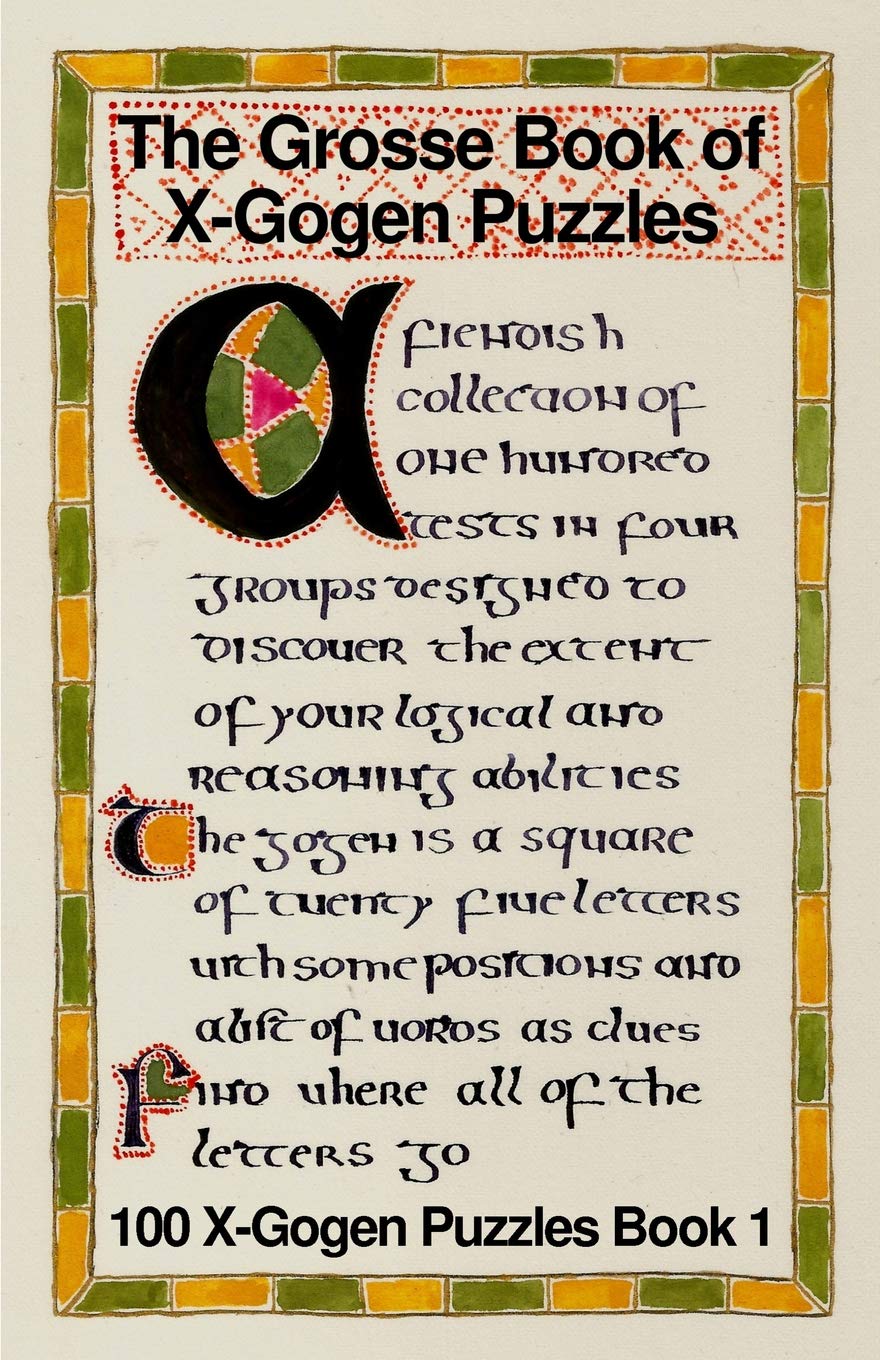 The Grosse Book of
X-Gogen Puzzles
a fiendish
collection of
one hundred
tests in four
groups designed to
discover the extent
of your logical and
reasoning abilities
The gogen is a square
of twenty five letters
with some positions and
a list of words as clues
Find where all of the
letters go
100 X-Gogen Puzzles Book 1